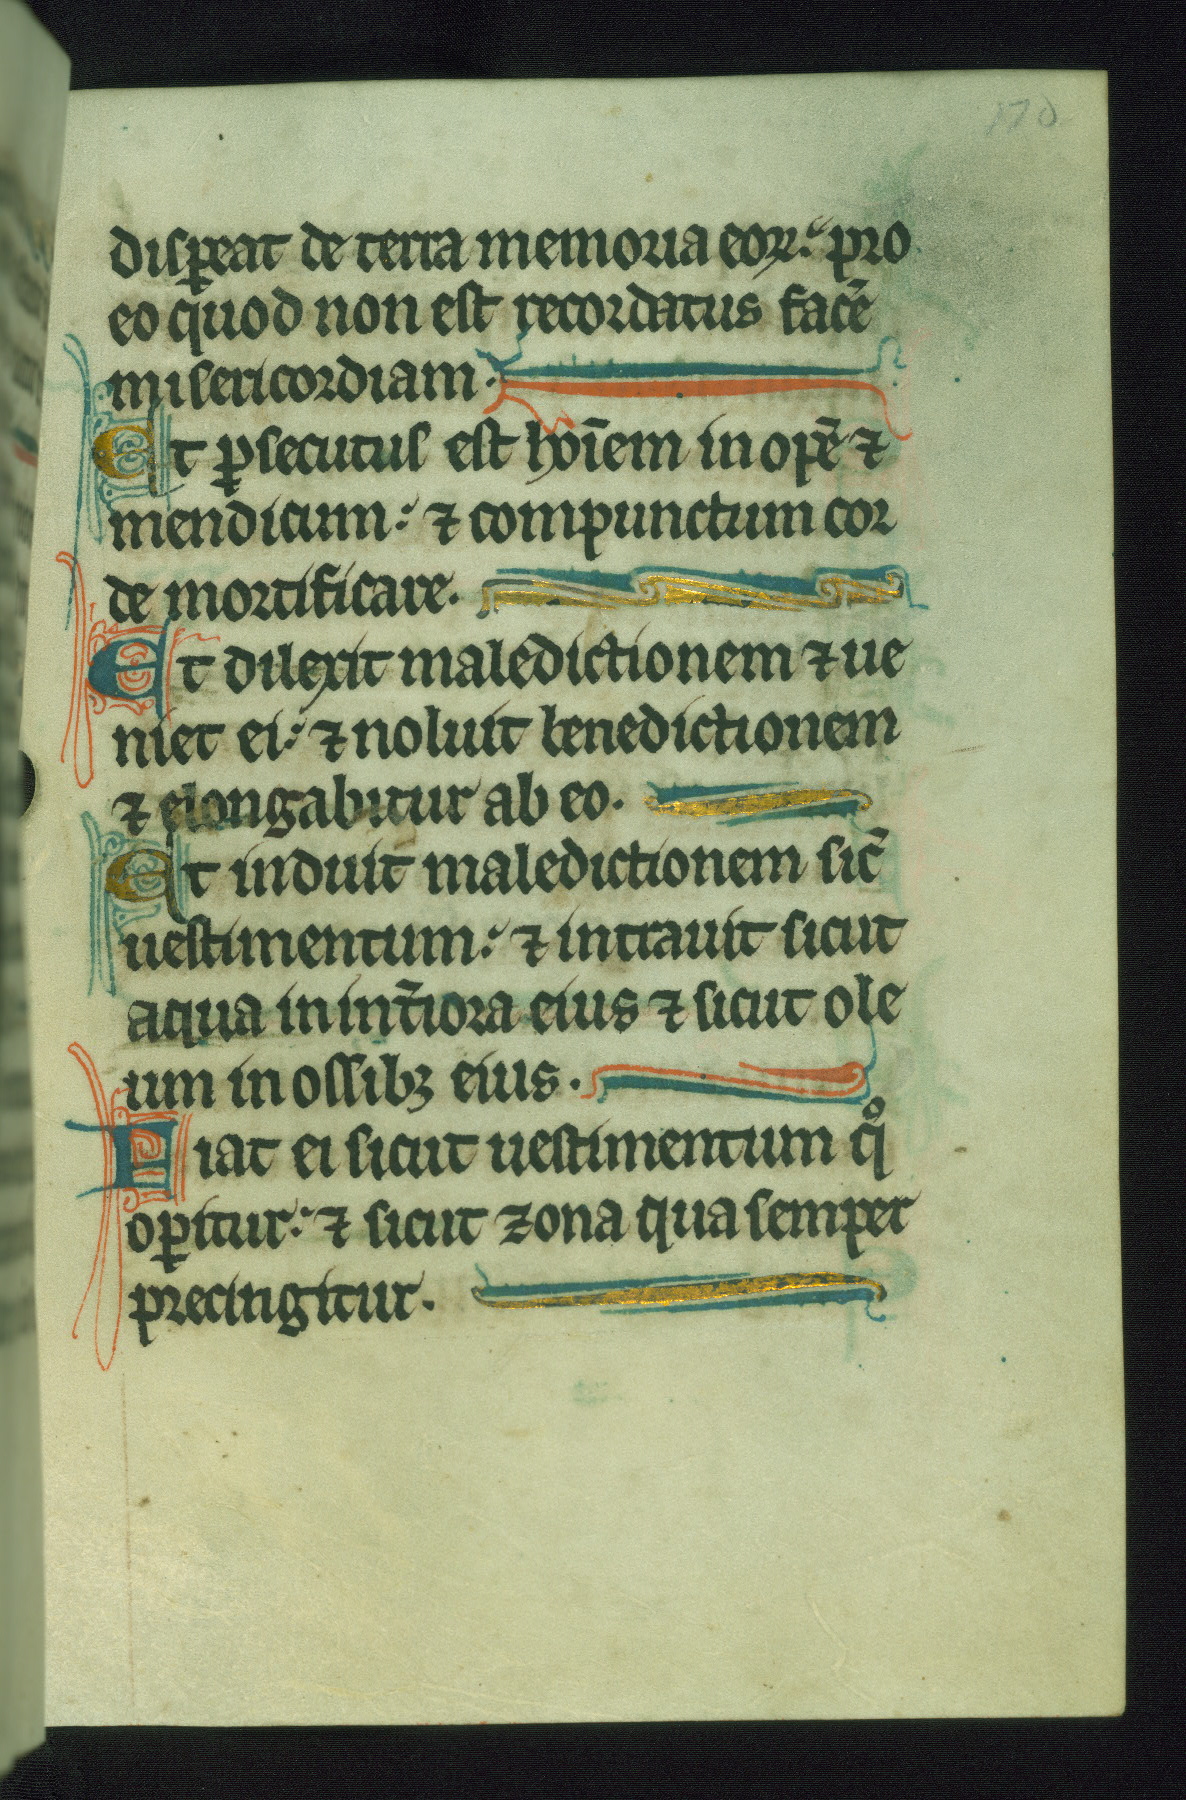 170
disꝑeat de terra memoria eoꝝ: pro
eo quod non est recordatus facē
misericordiam.
Et ꝑsecutus est hoīem inopē ⁊
mendicum: ⁊ compunctum cor
de mortificare.
Et dilexit maledictionem ⁊ ue
niet ei: ⁊ noluit benedictionem
⁊ elongabitur ab eo.
Et induit maledictionem sic̄
uestimentum: ⁊ intrauit sicut
aqua in int̄iora eius ⁊ sicut ole
um in ossibꝫ eius.
Fiat ei sicut uestimentum qͦ
oꝑitur: ⁊ sicut zona qua semper
precingitur.